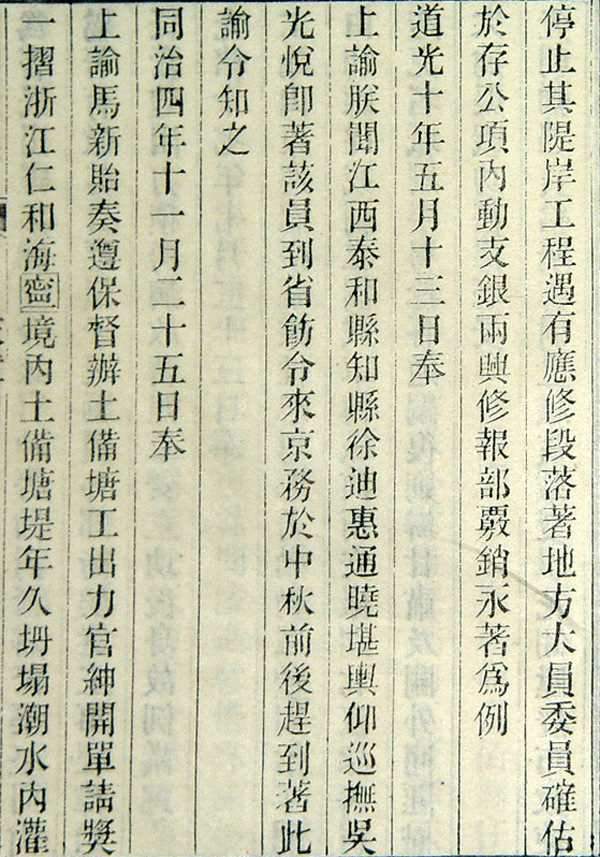 停止其隄岸工程遇有應修段落著地方大員委員確估
於存公項內動支銀兩興修報部覈銷永著爲例
道光十年五月十三日奉
上諭朕聞江西泰和縣知縣徐迪惠通曉堪輿仰巡撫吳
光悅卽著該員到省飭令來京務於中秋前後趕到著此
諭令知之
同治四年十一月二十五日奉
上諭馬新貽奏遵保督辦土備塘工出力官紳開單請奬
一摺浙江仁和海甯境內土備塘堤年久坍塌潮水內灌